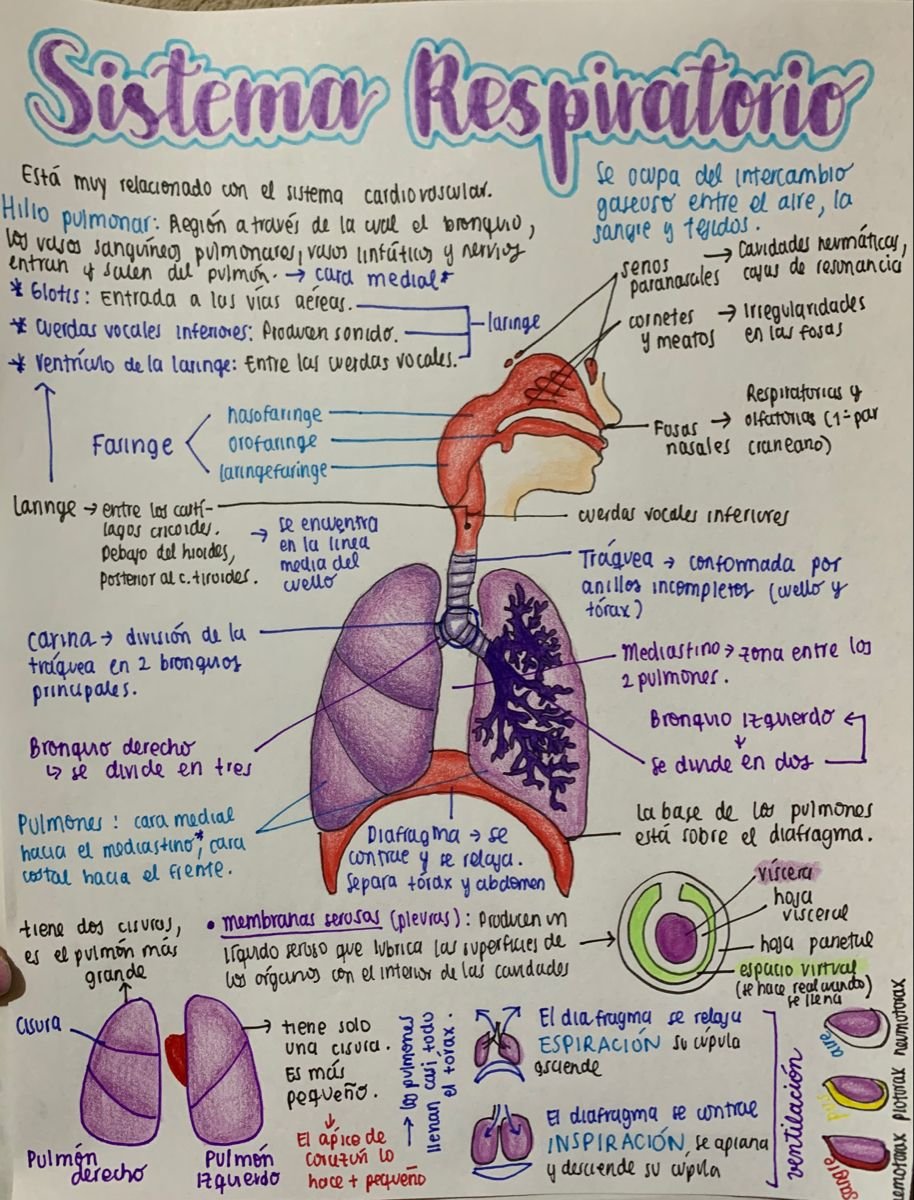 Sistema Respiratorio
Está muy relacionado con el sistema cardiovascular.
Hilio pulmonar: Región a través de la cual el bronquio,
los vasos sanguíneos pulmonares, vasos linfáticos y nervios
entran y salen del pulmón. → cara medial*
* Glotis: Entrada a las vías aéreas.
* Cuerdas vocales inferiores: Producen sonido.
* Ventrículo de la laringe: Entre las cuerdas vocales.
laringe
Se ocupa del intercambio
gaseoso entre el aire, la
sangre y tejidos.
senos
paranasales
→ Cavidades neumáticas,
cajas de resonancia
cornetes
y meatos
→ Irregularidades
en las fosas
Fosas
nasales
→ Respiratorias y
olfatorias (1= par
craneano)
Faringe
nasofaringe
orofaringe
laringefaringe
Laringe → entre los cartí-
lagos cricoides.
Debajo del hioides,
posterior al c. tiroides.
→ se encuentra
en la línea
media del
cuello
cuerdas vocales inferiores
Tráquea → conformada por
anillos incompletos (cuello y
tórax)
carina → división de la
tráquea en 2 bronquios
principales.
Mediastino → zona entre los
2 pulmones.
Bronquio derecho
↳ se divide en tres
Bronquio Izquierdo
↓
se divide en dos
Pulmones: cara medial
hacia el mediastino*, cara
costal hacia el frente.
Diafragma → se
contrae y se relaja.
Separa tórax y abdomen
la base de los pulmones
está sobre el diafragma.
• membranas serosas (pleuras): Producen un
líquido seroso que lubrica las superficies de
los órganos con el interior de las cavidades
víscera
hoja
visceral
hoja parietal
espacio virtual
(se hace real cuando)
se llena
tiene dos cisuras,
es el pulmón más
grande
cisura
Pulmón
derecho
Pulmón
Izquierdo
→ tiene solo
una cisura.
Es más
pequeño.
El ápice de
corazón lo
hace + pequeño
→ los pulmones
llenan casi todo
el tórax.
El diafragma se relaja
ESPIRACIÓN su cúpula
asciende
El diafragma se contrae
INSPIRACIÓN, se aplana
y desciende su cúpula
ventilación
aire
neumotorax
pus
piotorax
sangre
emotorax